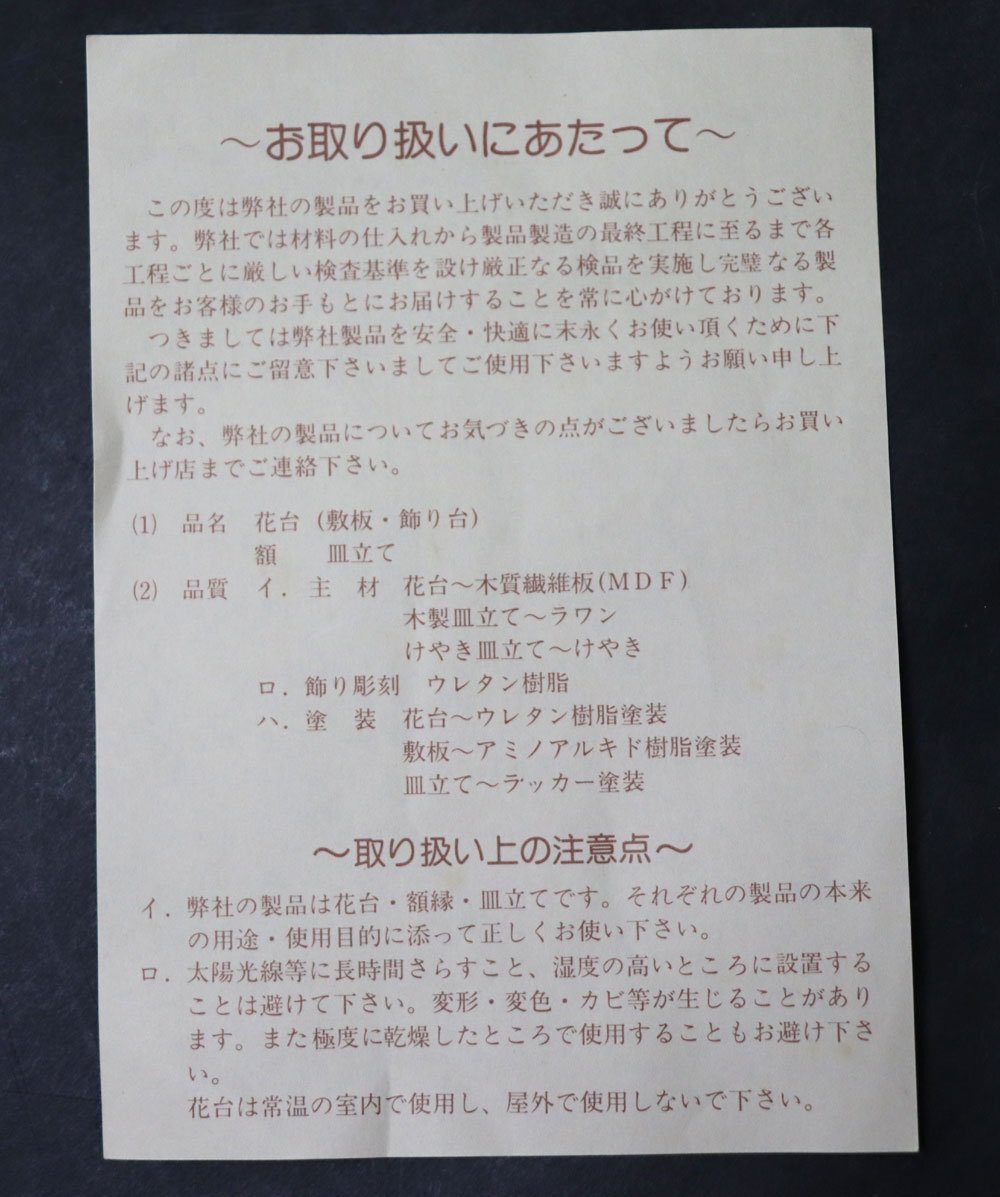 ～お取り扱いにあたって～
この度は弊社の製品をお買い上げいただき誠にありがとうござい
ます。弊社では材料の仕入れから製品製造の最終工程に至るまで各
工程ごとに厳しい検査基準を設け厳正なる検品を実施し完璧なる製
品をお客様のお手もとにお届けすることを常に心がけております。
つきましては弊社製品を安全・快適に末永くお使い頂くために下
記の諸点にご留意下さいましてご使用下さいますようお願い申し上
げます。
なお、弊社の製品についてお気づきの点がございましたらお買い
上げ店までご連絡下さい。
(1) 品名 花台 (敷板・飾り台)
額 皿立て
(2) 品質 イ．主 材 花台～木質繊維板(MDF)
木製皿立て～ラワン
けやき皿立て～けやき
ロ．飾り彫刻 ウレタン樹脂
ハ．塗 装 花台～ウレタン樹脂塗装
敷板～アミノアルキド樹脂塗装
皿立て～ラッカー塗装
～取り扱い上の注意点～
イ．弊社の製品は花台・額縁・皿立てです。それぞれの製品の本来
の用途・使用目的に添って正しくお使い下さい。
ロ．太陽光線等に長時間さらすこと、湿度の高いところに設置する
ことは避けて下さい。変形・変色・カビ等が生じることがあり
ます。また極度に乾燥したところで使用することもお避け下さ
い。
花台は常温の室内で使用し、屋外で使用しないで下さい。